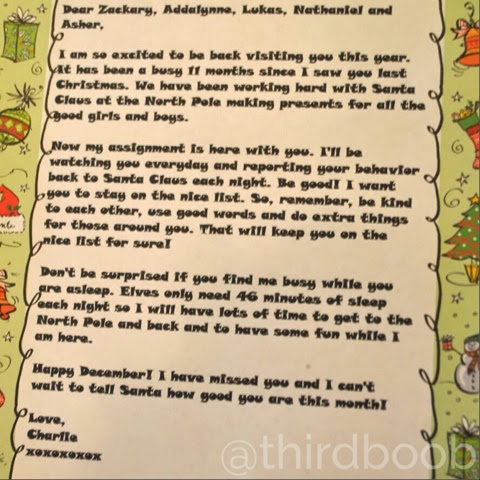 Dear Zackary, Addalynne, Lukas, Nathaniel and
Asher,
I am so excited to be back visiting you this year.
It has been a busy 11 months since I saw you last
Christmas. We have been working hard with Santa
Claus at the North Pole making presents for all the
good girls and boys.
Now my assignment is here with you. I'll be
watching you everyday and reporting your behavior
back to Santa Claus each night. Be good! I want
you to stay on the nice list. So, remember, be kind
to each other, use good words and do extra things
for those around you. That will keep you on the
nice list for sure!
Don't be surprised if you find me busy while you
are asleep. Elves only need 46 minutes of sleep
each night so I will have lots of time to get to the
North Pole and back and to have some fun while I
am here.
Happy December! I have missed you and I can't
wait to tell Santa how good you are this month!
Love,
Charlie
xoxoxoxox
@thirdboob